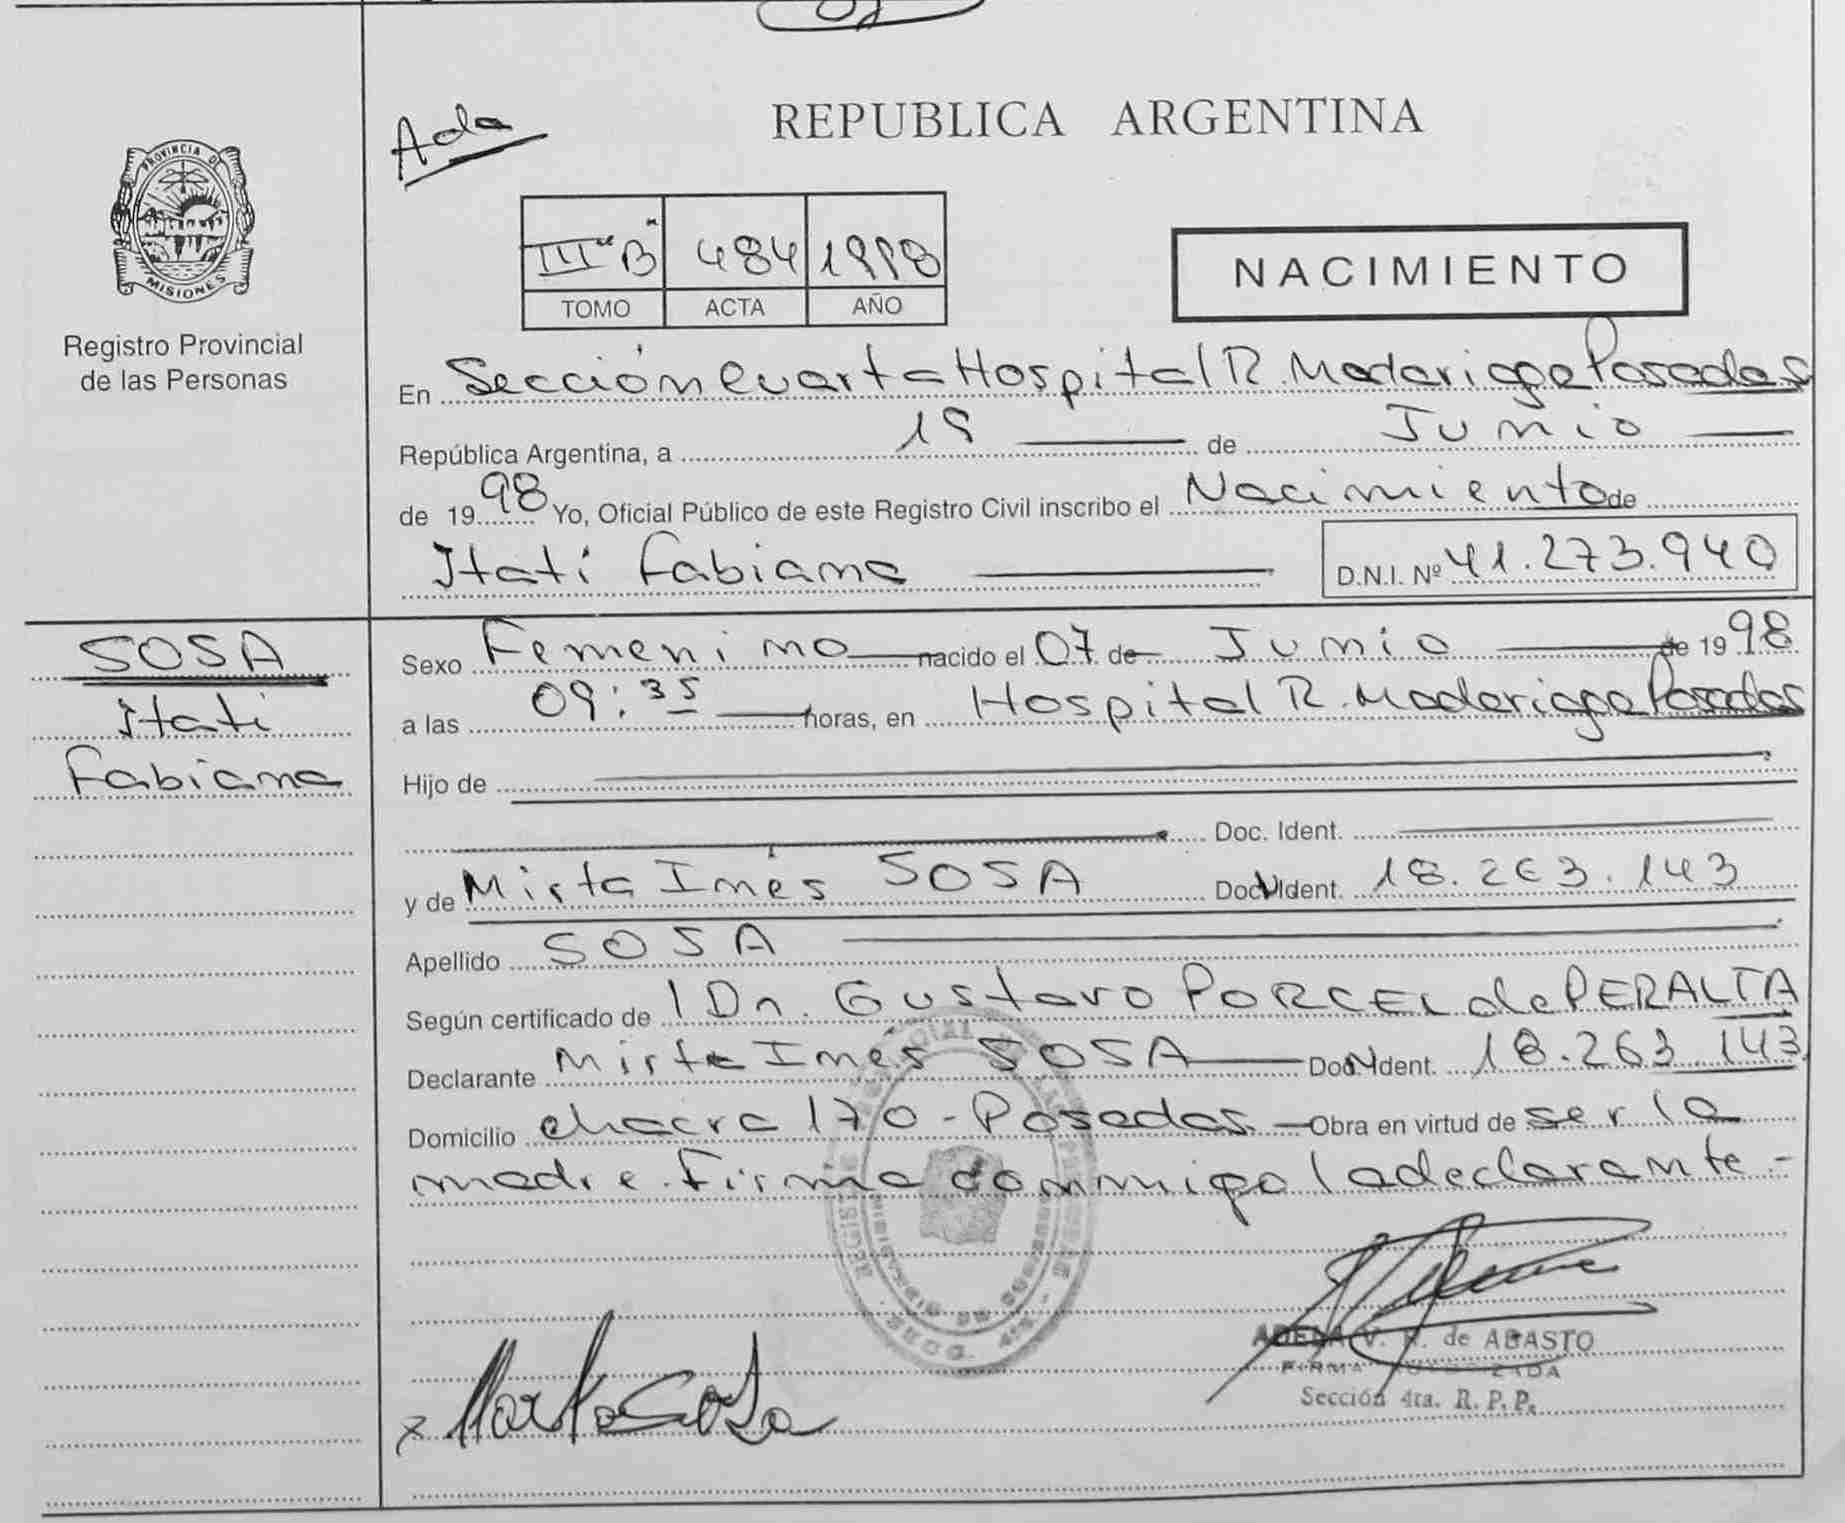 Ada
REPUBLICA ARGENTINA
PROVINCIA DE
MISIONES
Registro Provincial
de las Personas
III "B" 484 1998
TOMO ACTA AÑO
NACIMIENTO
En Sección Cuarta Hospital R. Madariaga Posadas
República Argentina, a 19 de Junio
de 1998 Yo, Oficial Público de este Registro Civil inscribo el Nacimiento de
Itatí Fabiana D.N.I. Nº 41.273.940
SOSA
Itatí
Fabiana
Sexo Femenino nacido el 07 de Junio de 1998
a las 09:35 horas, en Hospital R. Madariaga Posadas
Hijo de
Doc. Ident.
y de Mirta Inés SOSA Doc. Ident. 18.263.143
Apellido SOSA
Según certificado de l Dr. Gustavo PORCEL de PERALTA
Declarante Mirta Inés SOSA Doc. Ident. 18.263.143
Domicilio chacra 170 - Posadas. Obra en virtud de ser la
madre. Firma conmigo la declarante -
ADELA V. R. de ABASTO
FIRMA
Sección 4ta. R. P. P.
x Mirta Sosa